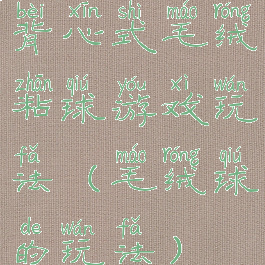 bèi xīn shì máo róng
背心式毛绒
zhān qiú yóu xì wán
粘球游戏玩
fǎ máo róng qiú
法（毛绒球
de wán fǎ
的玩法）